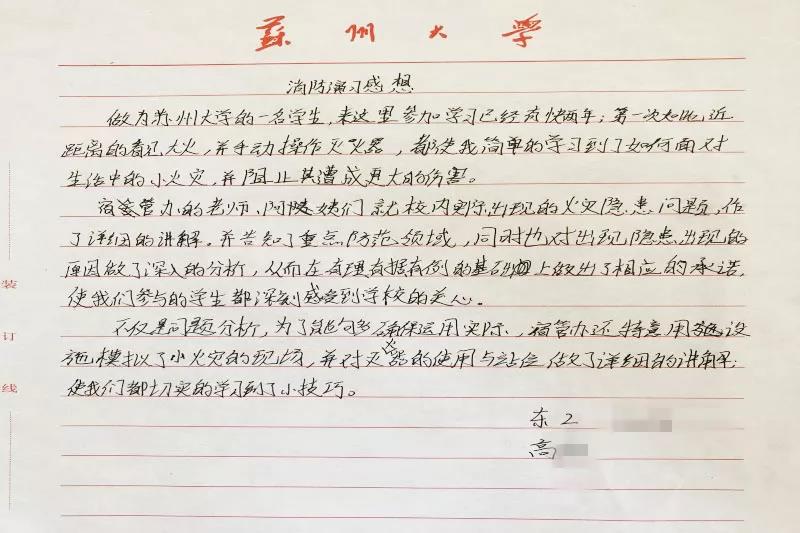 蘇州大學
消防演习感想
做为苏州大学的一名学生，来这里参加学习已经有快两年；第一次如此近
距离的看见大火，并手动操作灭火器，都使我简单的学习到了如何面对
生活中的小火灾，并阻止其遭成更大的伤害。
宿管办的老师、阿姨们就校内实际出现的火灾隐患问题，作
了详细的讲解。并告知了重点防范领域，同时也对出现隐患出现的
原因做了深入的分析，从而在有理有据有例的基础上做出了相应的承诺，
使我们参与的学生都深刻感受到学校的关心。
不仅是问题分析，为了能够确保运用实际，宿管办还特意用设
施模拟了小火灾的现场，并对灭火器的使用与站位做了详细的讲解；
使我们都切实的学习到了小技巧。
东2
高
装
订
线